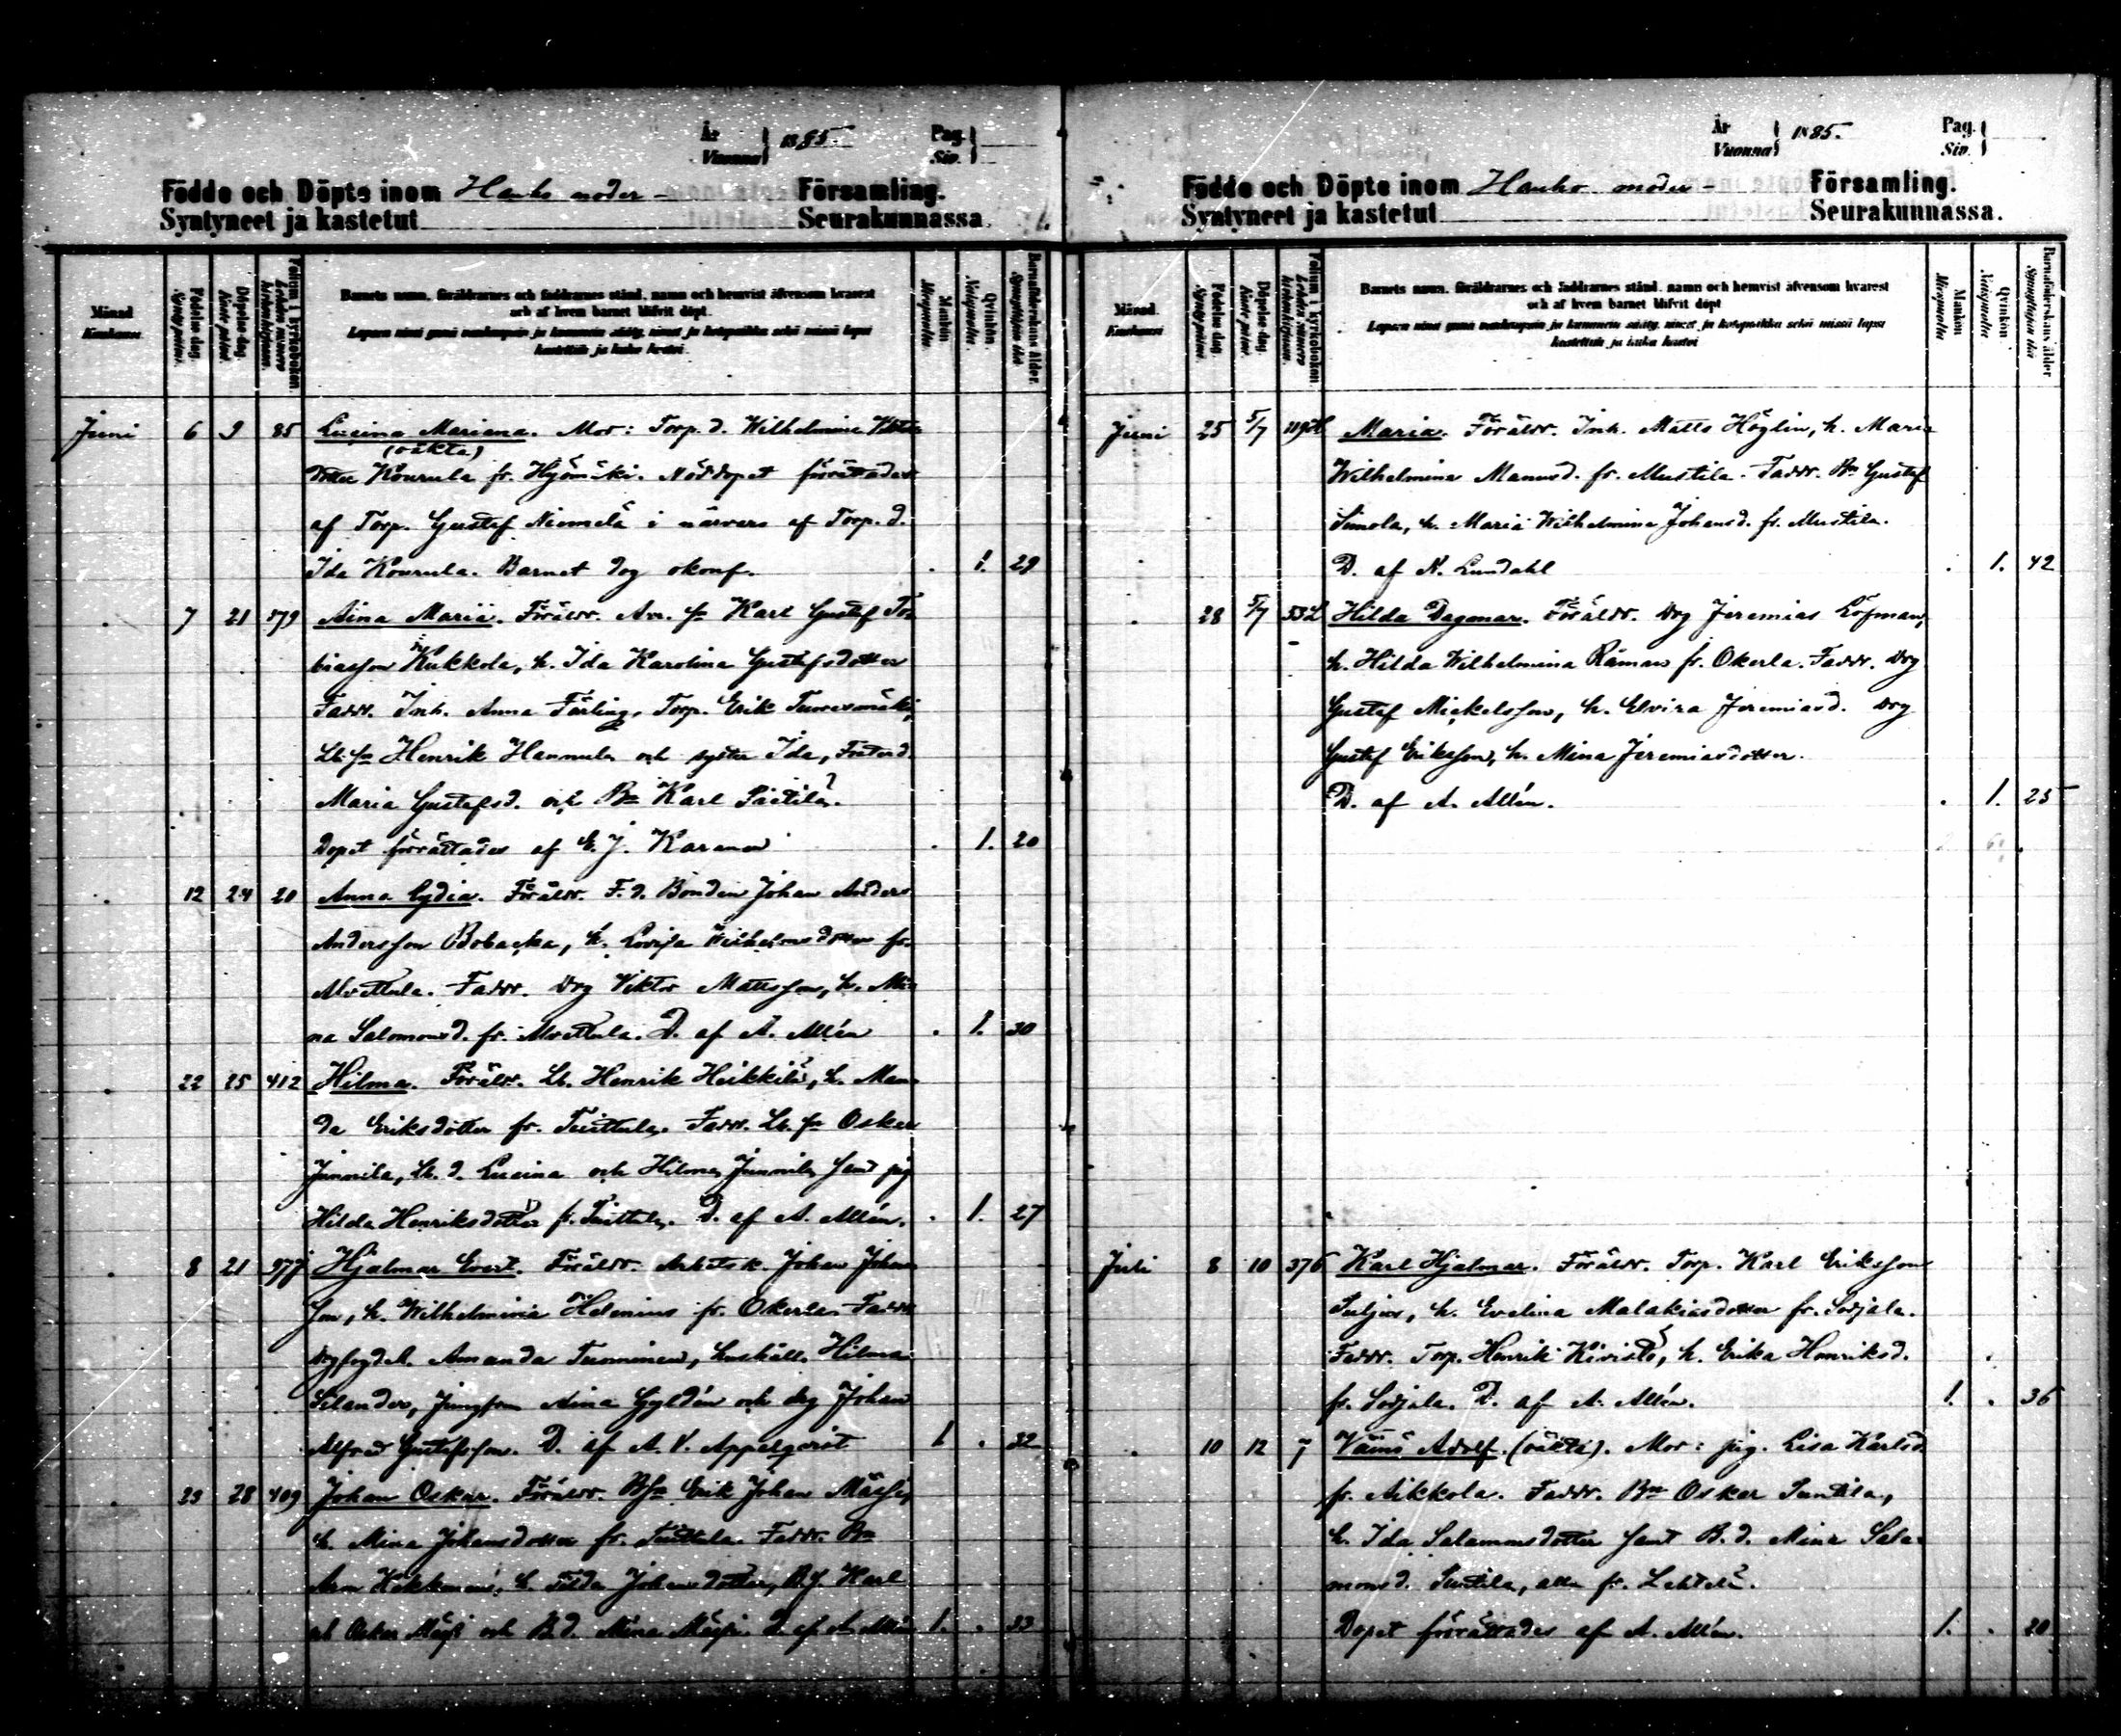 År Vuonna } 1885. Pag. Siv. }
Födde och Döpte inom Hauho moder- Församling.
Syntyneet ja kastetut Seurakunnassa.
Månad Kuukausi
Födelse dag. Syntypäivä.
Döpelse dag. Kastepäivä.
Folium i kyrkoboken. Lehden numero kirkonkirjassa.
Barnets namn, föräldrarnes och faddrarnes stånd, namn och hemvist äfvensom hvarest
och af hvem barnet blifvit döpt.
Lapsen nimi ynnä vanhempain ja kummein sääty, nimet ja kotopaikka sekä missä lapsi
kastettiin ja kuka kastoi.
Mankön Miespuolta
Qvinkön Naispuolta
Barnaföderskans ålder. Synnyttäjän ikä
Juni 6 9 85 Lucina Mariana. Mor: Torp. d. Wilhelmina
(oäkta)
Kourula fr. Hyömäki. Nöddopet förrättades
af Torp. Gustaf Niemelä i närvaro af Torp. d.
Ida Kourula. Barnet dog okonf. . 1. 29
. 7 21 Aina Maria. Föräldr. Karl Gustaf To-
biasson Kukkola, h. Ida Karolina Gustafsdotter
Faddr. Inh. Anna Färling, Torp. Erik
Henrik Hannula och syster Ida,
Maria Gustafsd. och Bn Karl
Dopet förrättades af E. J. . 1. 20
. 12 24 20 Anna Lydia. Föräldr. F. d. Bonden Johan Anders
Andersson Bobacka, h. Lovisa Wilhelmsdotter fr.
Alvettula. Faddr. Drg Viktor Mattsson, h. Mi-
na Salomonsd. fr. Alvettula. D. af A. Allén . 1. 30
. 22 25 412 Hilma. Föräldr. Lb. Henrik Heikkilä, h. Man-
da Eriksdotter fr. Tuittula. Faddr. Lb. sn Oskar
Junnila, Lb. d. Lucina och Hilma Junnila samt pig
Hilda Henriksdotter fr. Tuittula. D. af A. Allén. . 1. 27
. 8 21 Hjalmar Evert. Föräldr. Arbetsk. Johan Johans-
son, h. Wilhelmina Helenius fr. Okerla. Faddr.
Amanda Tuominen, hushåll. Hilma
Selander, Jungfrun Aina Gyldén och drg Johan
Alfred Gustafsson. D. af A. V. Appelqvist 1 . 32
. 23 28 409 Johan Oskar. Föräldr. Erik Johan
h. Mina Johansdotter fr. Tuittula. Faddr. Bn
h. Johansdotter, Karl
och Oskar och B. d. Mina D. af A. Allén 1. . 33
År Vuonna } 1885. Pag. Siv. }
Födde och Döpte inom Hauho moder- Församling.
Syntyneet ja kastetut Seurakunnassa.
Månad. Kuukausi
Födelse dag. Syntypäivä.
Döpelse dag. Kastepäivä.
Folium i kyrkoboken. Lehden numero kirkonkirjassa.
Barnets namn, föräldrarnes och faddrarnes stånd, namn och hemvist äfvensom hvarest
och af hvem barnet blifvit döpt
Lapsen nimi ynnä vanhempain ja kummein sääty, nimet ja kotopaikka sekä missä lapsi
kastettiin ja kuka kastoi
Mankön Miespuolta
Qvinkön. Naispuolta
Barnaföderskans ålder Synnyttäjän ikä
Juni 25 5/7 Maria. Föräldr. Inh. Matts Höglin, h. Maria
Wilhelmina Manusd. fr. Mustila. Faddr. Bn Gustaf
Simola, h. Maria Wilhelmina Johansd. fr. Mustila.
D. af N. Lundahl . 1. 42
. 28 5/7 Hilda Dagmar. Föräldr. Drg Jeremias Löfman,
h. Hilda Wilhelmina fr. Okerla. Faddr. Drg
Gustaf Mickelsson, h. Elvira Jeremiasd. Drg
Gustaf Eriksson, h. Mina Jeremiasdotter.
D. af A. Allén. . 1. 25
Juli 8 10 376 Karl Hjalmar. Föräldr. Torp. Karl Eriksson
h. Evelina Malakiasdotter fr. Sorjala.
Faddr. Torp. Henrik Kivistö, h. Erika Henriksd.
fr. Sorjala. D. af A. Allén. 1. . 36
. 10 12 7 Väinö Adolf. (oäkta). Mor: pig. Lisa Karlsd.
fr. Aikkola. Faddr. Bn Oskar Suntila,
h. Ida Salamonsdotter samt B. d. Mina Sala-
monsd. Suntila, alla fr. Lehtelä.
Dopet förrättades af A. Allén. 1. . 20